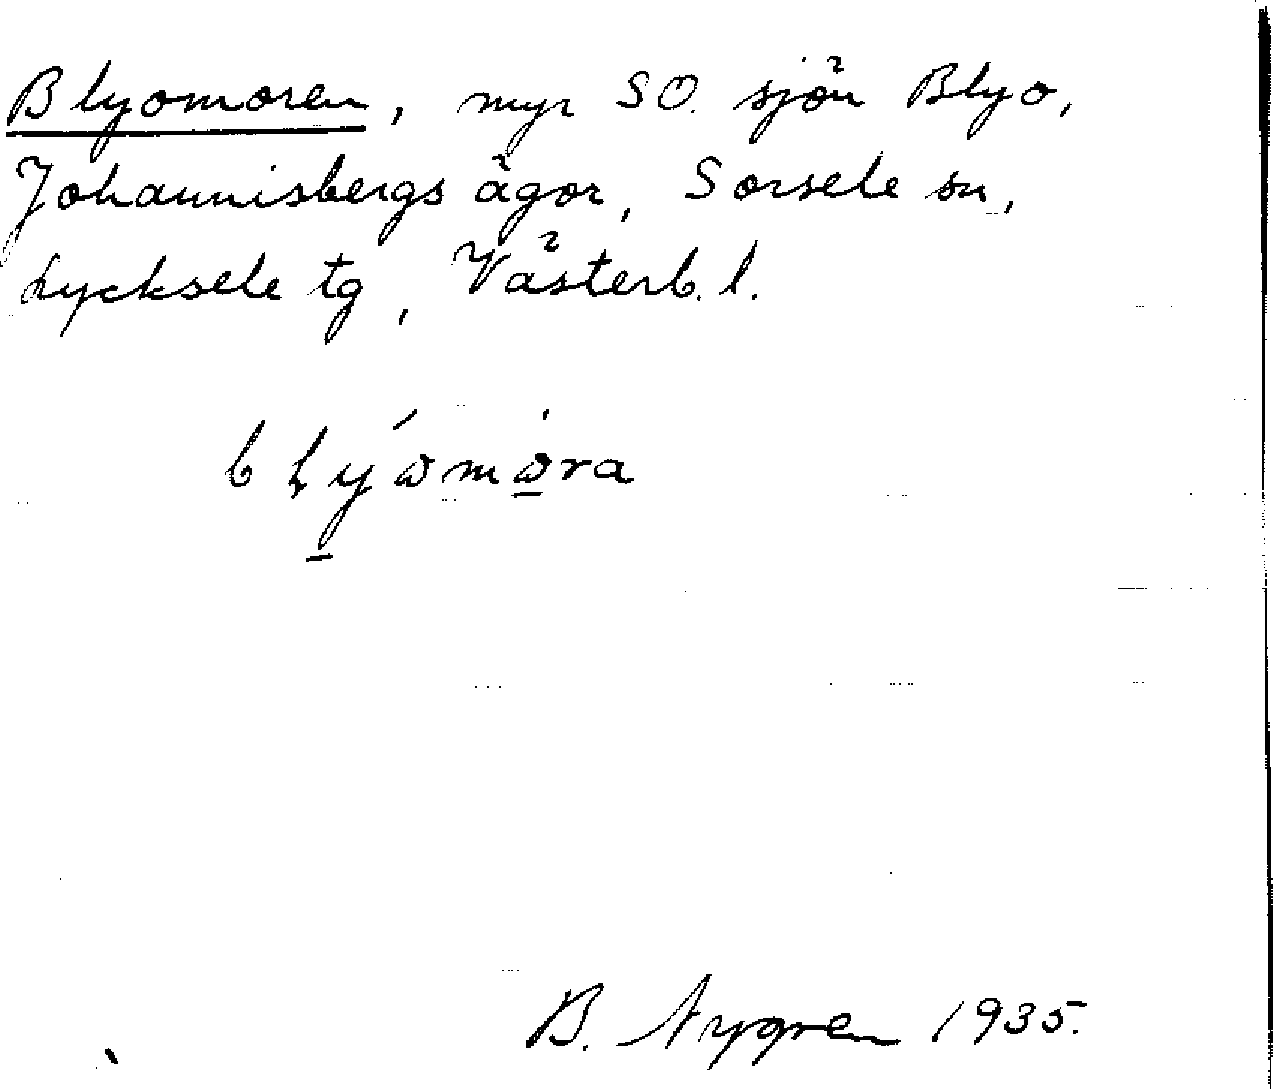 Blyomoren, myr SO. sjön Blyo,
Johannisbergs ägor, Sorsele sn,
Lycksele tg, Västerb. l.
B. Nygren 1935.